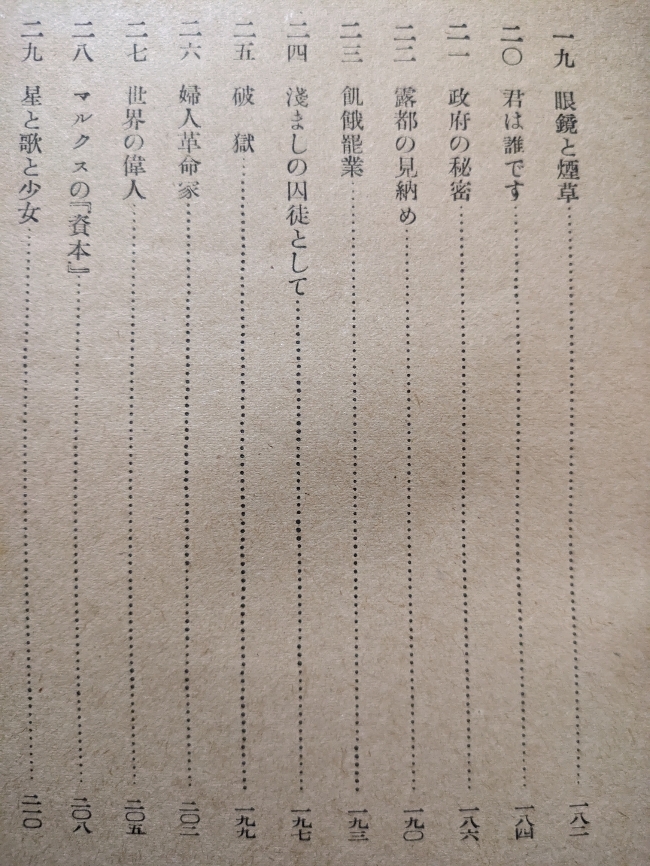 一九 眼鏡と煙草……一八二
二〇 君は誰です……一八四
二一 政府の秘密……一八六
二二 露都の見納め……一九〇
二三 飢餓罷業……一九三
二四 淺ましの囚徒として……一九七
二五 破獄……一九九
二六 婦人革命家……二〇二
二七 世界の偉人……二〇五
二八 マルクスの『資本』……二〇八
二九 星と歌と少女……二一〇